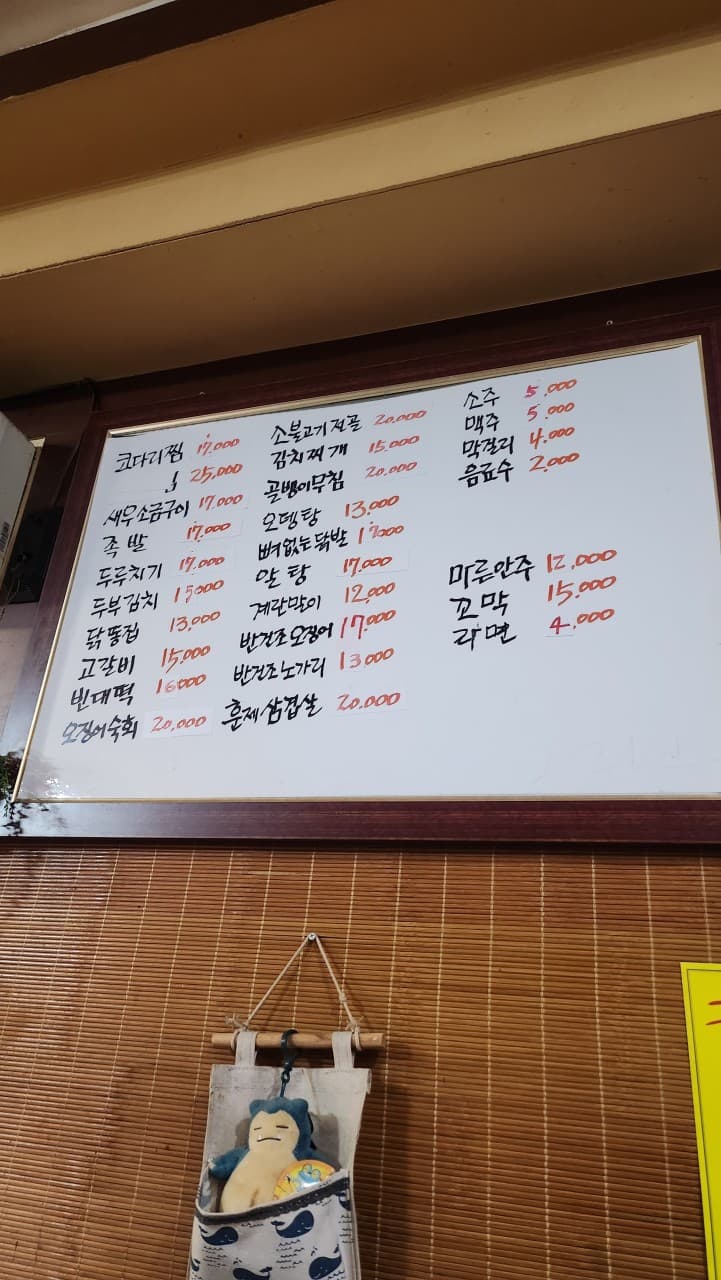 코다리찜 17,000
25,000
새우소금구이 17,000
족발 17,000
두루치기 17,000
두부김치 15000
닭똥집 13,000
고갈비 15,000
빈대떡 16000
오징어숙회 20,000
소불고기전골 20,000
김치찌개 15,000
골뱅이무침 20,000
오뎅탕 13,000
뼈없는닭발
알탕 17,000
계란말이 12,000
반건조오징어 17,000
반건조노가리 13,000
훈제삼겹살 20,000
소주 5,000
맥주 5,000
막걸리 4,000
음료수 2,000
마른안주 12,000
꼬막 15,000
라면 4,000